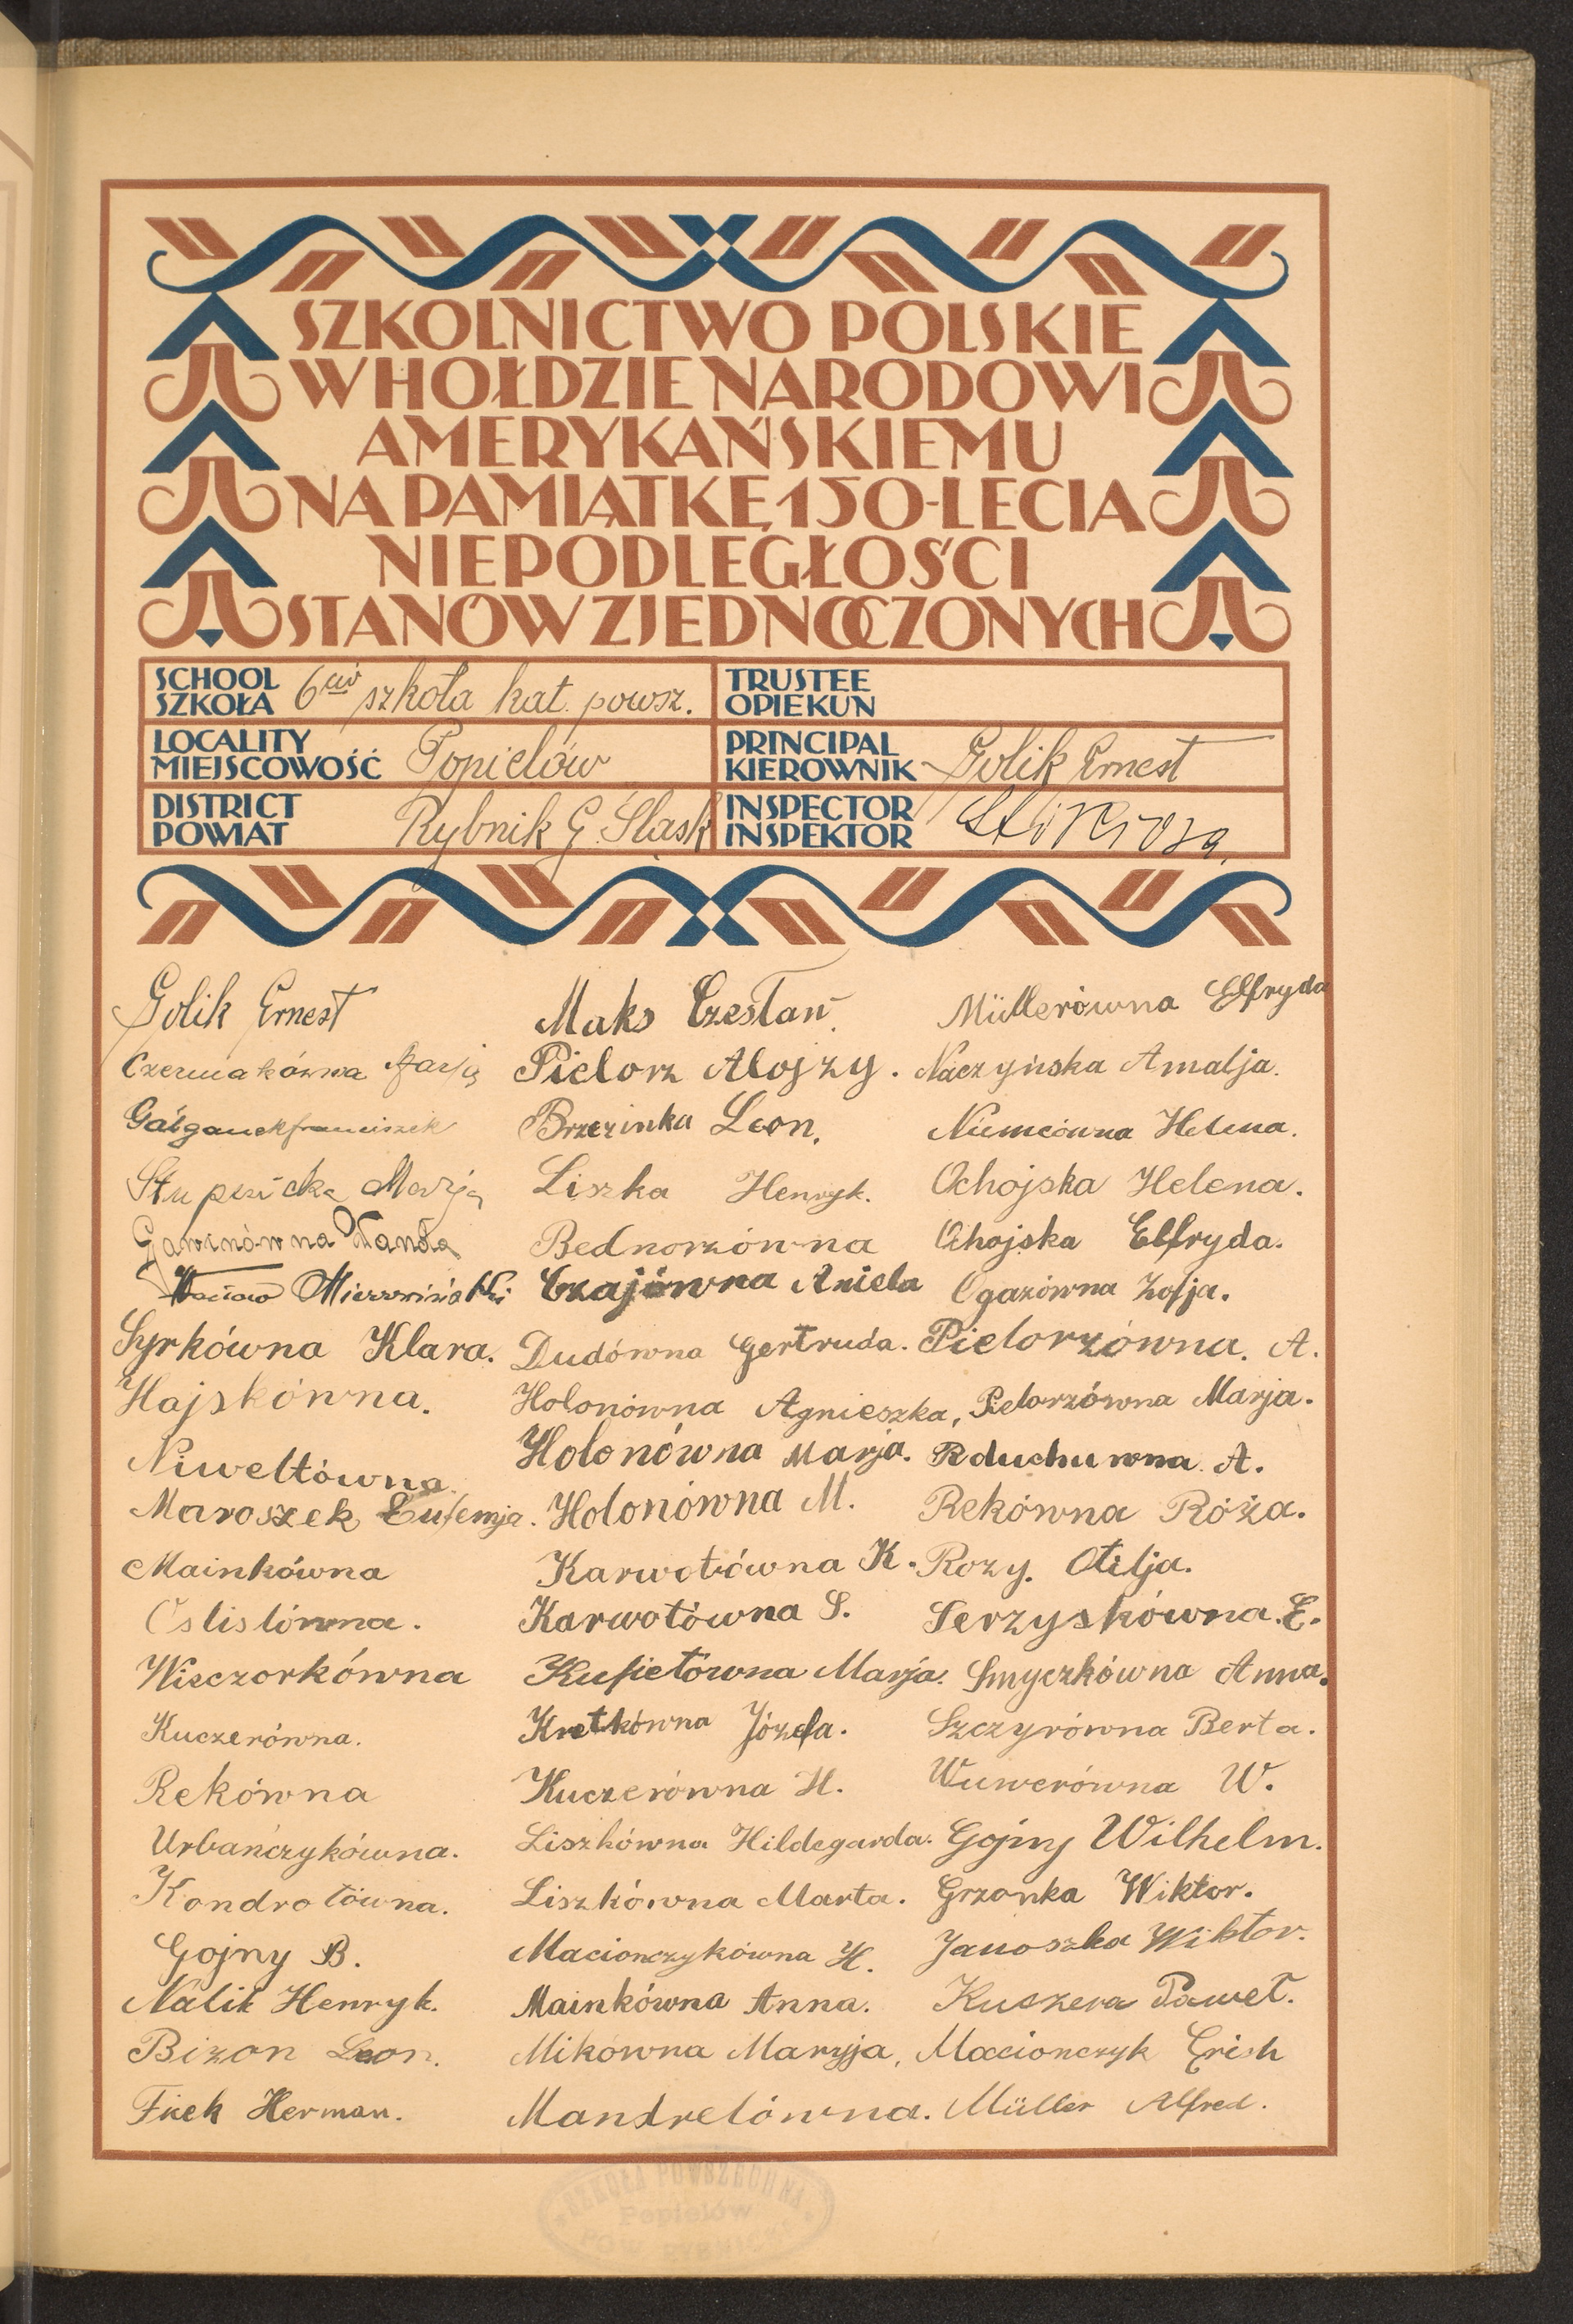 SZKOLNICTWO POLSKIE
W HOŁDZIE NARODOWI
AMERYKAŃSKIEMU
NA PAMIĄTKĘ 150-LECIA
NIEPODLEGŁOŚCI
STANÓW ZJEDNOCZONYCH
SCHOOL
SZKOŁA
6cio szkoła kat. powsz.
TRUSTEE
OPIEKUN
LOCALITY
MIEJSCOWOŚĆ
Popielów
PRINCIPAL
KIEROWNIK
Golik Ernest
DISTRICT
POWIAT
Rybnik G. Śląsk
INSPECTOR
INSPEKTOR
Golik Ernest
Czermakówna
Gałganek Franciszek
Słupnicka Marja
Gawenówna Wanda
Wacław
Syrkówna Klara.
Hajskówna.
Niweltówna.
Maroszek Eufemja.
Mainkówna
Oslislówna.
Wieczorkówna
Kuczerówna.
Rekówna
Urbańczykówna.
Kondrotówna.
Gojny B.
Nalik Henryk.
Bizon Leon.
Ficek Herman.
Maks Czesław.
Pielorz Alojzy.
Brzezinka Leon.
Liszka Henryk.
Bednorzówna
Czajówna Aniela
Dudówna Gertruda.
Holonówna Agnieszka,
Holonówna Marja.
Holonówna M.
Karwotówna K.
Karwotówna S.
Kufietówna Marja.
Kretkówna Józefa.
Kuczerówna H.
Liszkówna Hildegarda.
Liszkówna Marta.
Macionczykówna H.
Mainkówna Anna.
Mikówna Maryja,
Mandrelówna.
Müllerówna Elfryda
Naczyńska Amalja.
Niemcówna Helena.
Ochojska Helena.
Ochojska Elfryda.
Ogazówna Zofja.
Pielorzówna. A.
Pielorzówna Marja.
Rduchuwna A.
Rekówna Róża.
Rozy. Otilja.
Serzyskówna. E.
Smyczkówna Anna.
Szczyrówna Berta.
Wuwerówna W.
Gojny Wilhelm.
Grzonka Wiktor.
Janoszka Wiktor.
Kuszera Paweł.
Macionczyk Erich
Müller Alfred.
SZKOŁA POWSZECHNA
Popielów